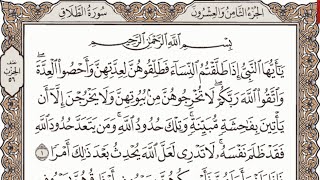 الجزء الثامن والعشرون
سورة الطلاق
بِسْمِ اللَّهِ الرَّحْمَٰنِ الرَّحِيمِ
يَا أَيُّهَا النَّبِيُّ إِذَا طَلَّقْتُمُ النِّسَاءَ فَطَلِّقُوهُنَّ لِعِدَّتِهِنَّ وَأَحْصُوا الْعِدَّةَ ۖ
وَاتَّقُوا اللَّهَ رَبَّكُمْ ۖ لَا تُخْرِجُوهُنَّ مِنْ بُيُوتِهِنَّ وَلَا يَخْرُجْنَ إِلَّا أَنْ
يَأْتِينَ بِفَاحِشَةٍ مُبَيِّنَةٍ ۚ وَتِلْكَ حُدُودُ اللَّهِ ۚ وَمَنْ يَتَعَدَّ حُدُودَ اللَّهِ
فَقَدْ ظَلَمَ نَفْسَهُ ۚ لَا تَدْرِي لَعَلَّ اللَّهَ يُحْدِثُ بَعْدَ ذَٰلِكَ أَمْرًا ١